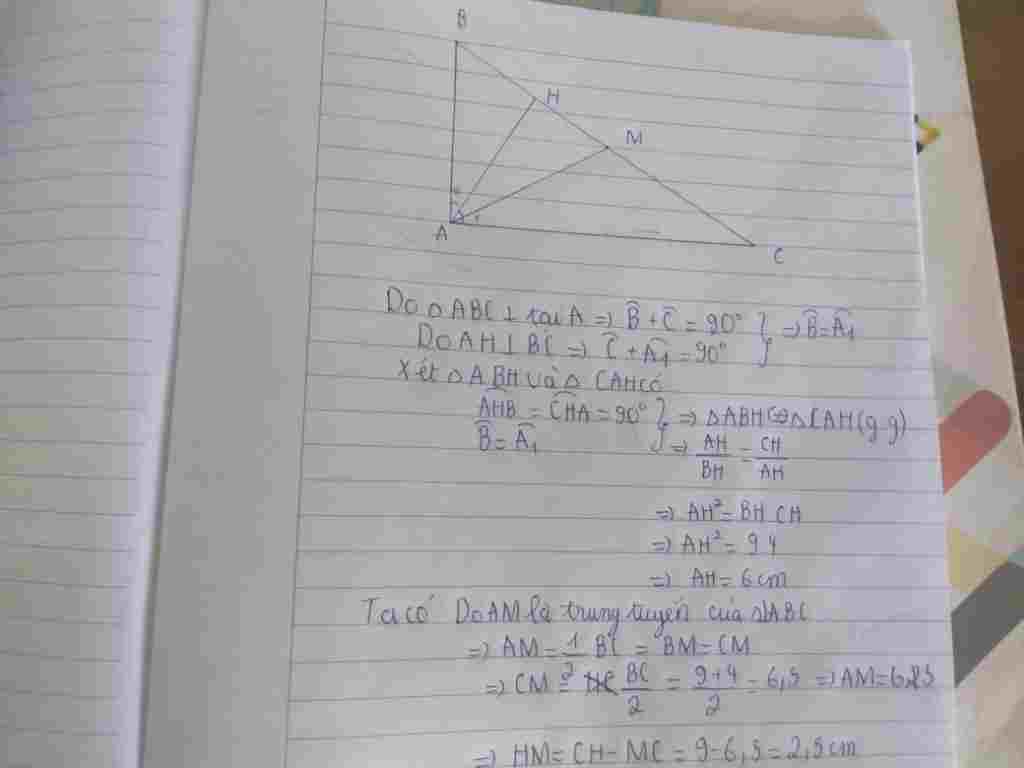 B
H
M
A
C
Do △ABC ⊥ tại A => B̂ + Ĉ = 90° } => B̂ = Â₁
Do AH ⊥ BC => Ĉ + Â₁ = 90°
Xét △ ABH và △ CAH có
AHB = CHA = 90° } => △ABH ∽ △CAH (g.g)
B̂ = Â₁ => AH/BH = CH/AH
=> AH² = BH CH
=> AH² = 9 4
=> AH = 6 cm
Ta có Do AM là trung tuyến của △ABC
=> AM = 1/2 BC = BM = CM
=> CM = BC/2 = (9+4)/2 = 6,5 => AM =
=> HM = CH - MC = 9 - 6,5 = 2,5 cm